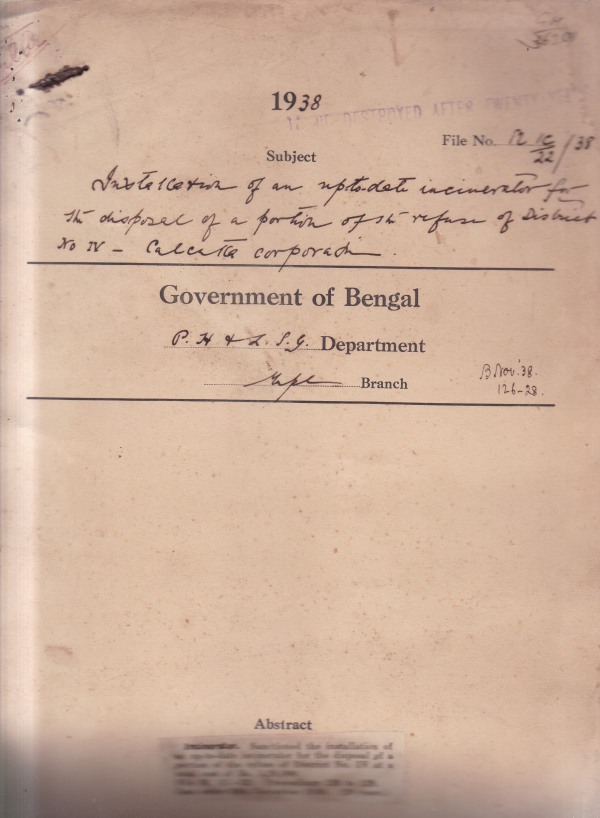 1938
TO BE DESTROYED AFTER TWENTY YEARS
File No. 1C/22/38
Subject
Installation of an up to date incinerator for
the disposal of a portion of the refuse of District
No IV - Calcutta corporation.
Government of Bengal
P. H & L. S. G. Department
Branch
B Nov '38.
126-28.
Abstract
Incinerator. Sanctioned the installation of
an up-to-date incinerator for the disposal of a
portion of the refuse of District No. IV at a